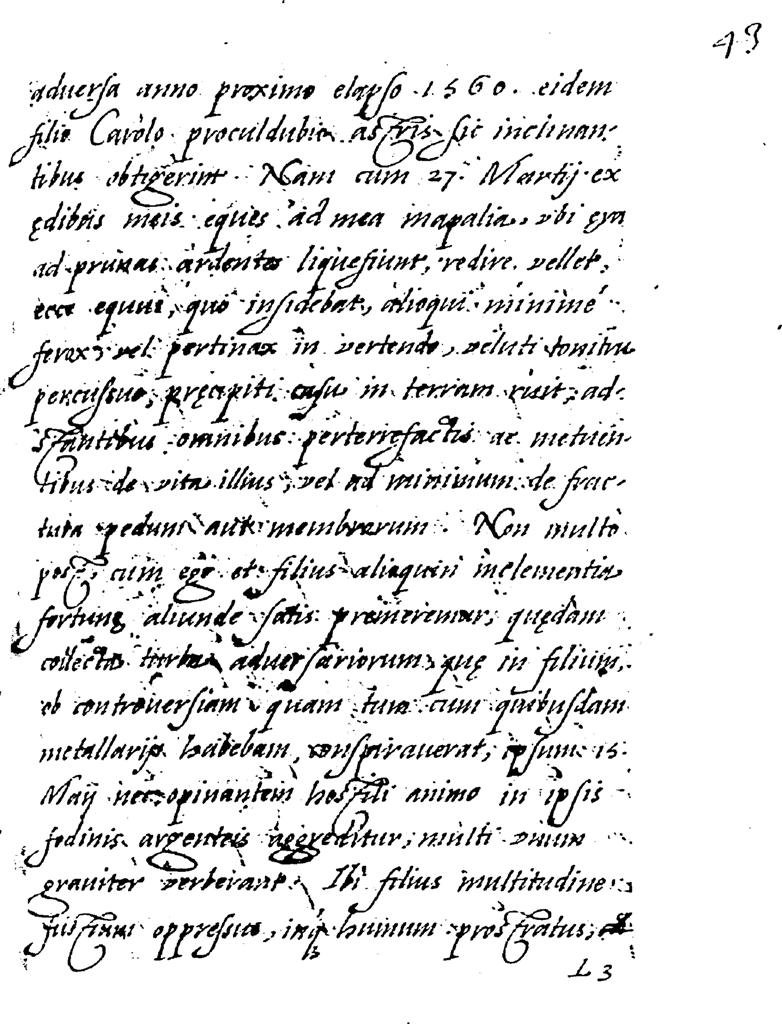 43
adversa anno proximo elapso 1560. eidem
filio Carolo proculdubio astris sic inclinan-
tibus obtigerint. Nam cum 27. Martij ex
ędibus meis eques ad mea mapalia, ubi ęra
ad prunas ardentes liquefiunt, redire vellet,
ecce equus, quo insidebat, alioqui minimè
ferox, vel pertinax in vertendo, veluti tonitru
percussus, pręcipiti casu in terram ruit, ad-
stantibus omnibus perterrefactis ac metuen-
tibus de vita illius, vel ad minimum de frac-
tura pedum aut membrorum. Non multò
post, cum ego et filius alioquin inclementia
fortunę aliunde satis premeremur, quędam
collecta turba adversariorum, quę in filium,
ob controversiam quam tum cum quibusdam
metallarijs habebam, conspiraverat, ipsum 15
Maij nec opinantem hostili animo in ipsis
fodinis argenteis aggreditur, multi unum
graviter verberant. Ibi filius multitudine
fustium oppressus, inq₃ humum prostratus,
L 3